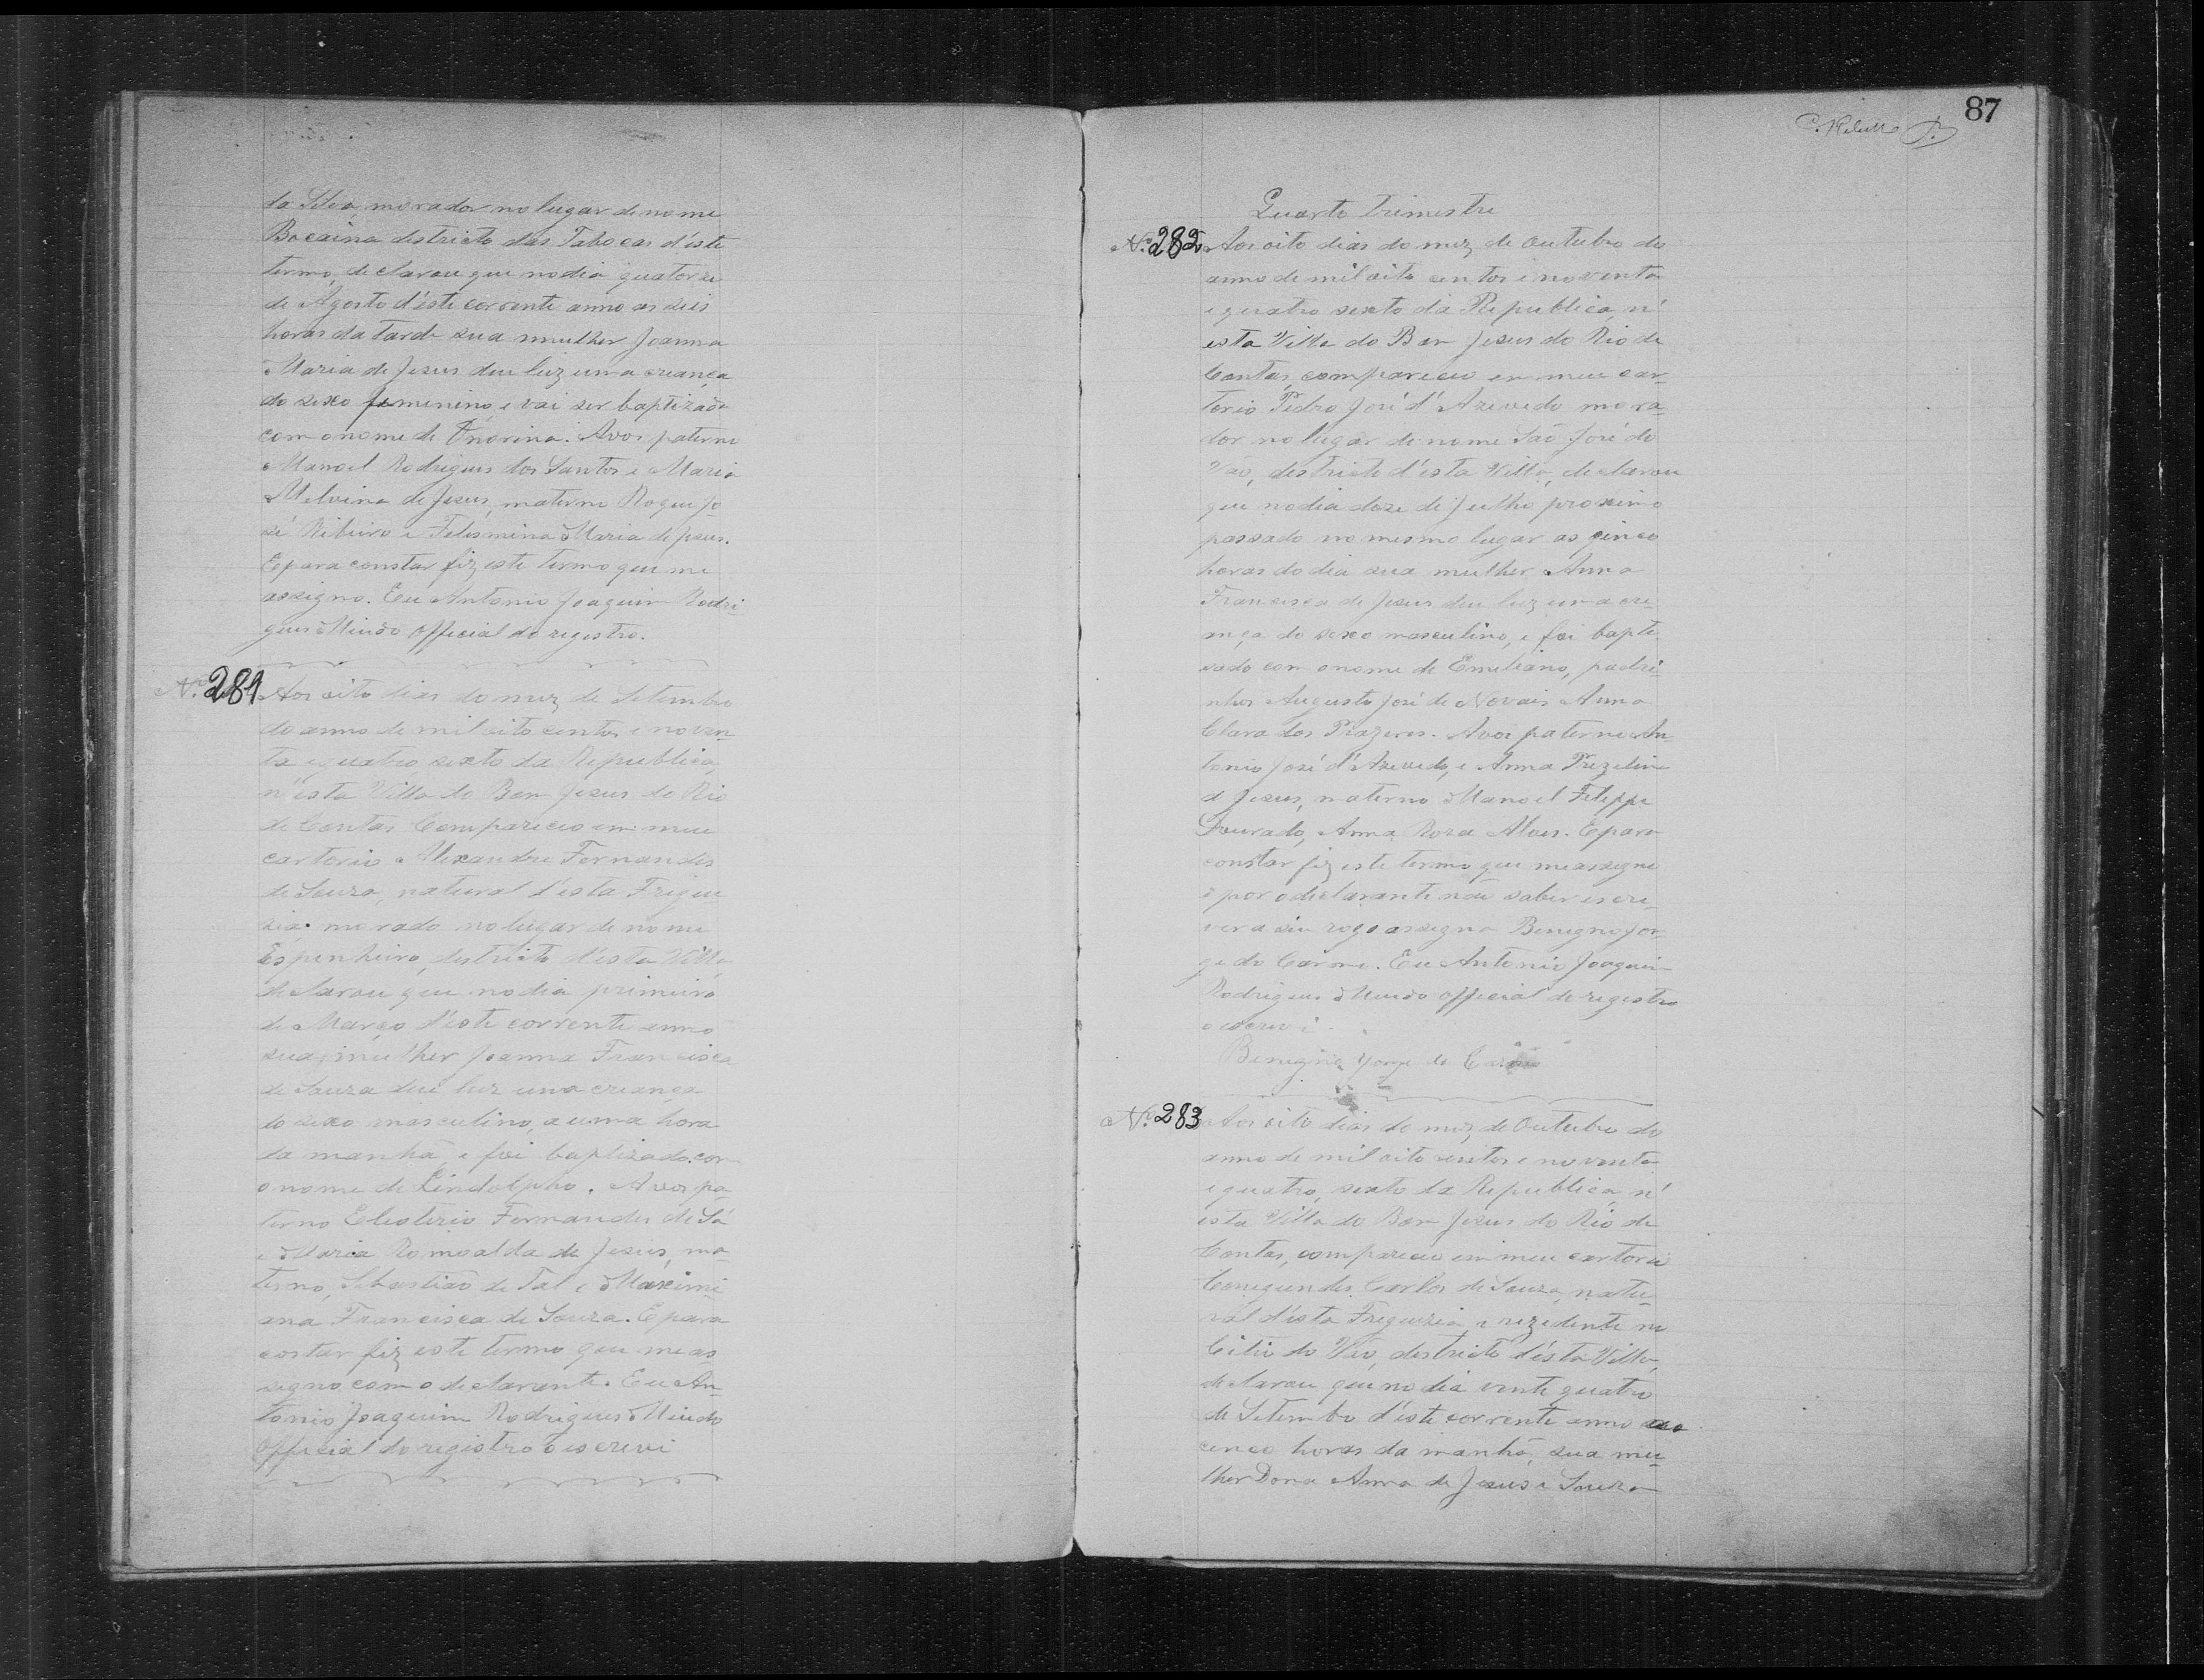 da Silva, morador no lugar de nome
Bocaina destricto das Tabocas d'este
termo, declarou que no dia quatorze
de Agosto d'este corrente anno as seis
horas da tarde sua mulher Joanna
Maria de Jesus deu luz uma creança
do sexo femenino, e vai ser baptizada
com o nome de Onorina. Avos paterno
Manoel Rodrigues dos Santos e Maria
Melvina de Jesus, materno Roque Jo
sé Ribeiro e Felismina Maria de Jesus.
E para constar fiz este termo que me
assigno. Eu Antonio Joaquim Rodri-
gues Official do registro.
Nº 281 Aos oito dias do mez de Setembro
do anno de mil oito centos e noven-
ta e quatro sexto da Republica,
n'esta Villa do Bom Jesus do Rio
de Contas Compareceo em meu
cartorio Alexandre Fernandes
de Souza, natural d'esta Fregue
sia morado no lugar de nome
Espenheiro, destricto d'esta Villa,
declarou que no dia primeiro
de Março d'este corrente anno
sua mulher Joanna Francisca
de Souza deu luz uma creança
do sexo masculino, a uma hora
da manhã, e foi baptizado com
o nome de Lindolpho. Avos pa-
terno Eleoterio Fernandes de Sá
e Maria Romoalda de Jesus, ma-
terno, Sebastião de Tal e Maximi
ana Francisca de Souza. E para
costar fiz este termo que me as
signo com o declarante. Eu An-
tonio Joaquim Rodrigues
Official do registro o escrevi
87
Quarto trimestre
Nº 282 Aos oito dias do mez de Outubro do
anno de mil oito centos e noventa
e quatro sexto da Republica, n'
esta Villa do Bom Jesus do Rio de
Contas, compareceo em meu car-
torio Pedro José d'Azevedo mora-
dor no lugar de nome São José do
Vão, destricto d'esta Villa, declarou
que no dia doze de Julho proximo
passado no mesmo lugar as cinco
horas do dia sua mulher Anna
Francisca de Jesus deu luz uma cre-
ança do sexo masculino, e foi bapti-
sado com o nome de Emeliano, padri-
nhos Augusto José de Novais Anna
Clara dos Prazeres. Avos paterno An-
tonio José d'Azevedo, e Anna
de Jesus, materno Manoel Felippe
Dourado, Anna Roza Alves. E para
constar fiz este termo que me assigno
e por o declarante não saber escre-
ver a seu rogo assigna Benegno Jor-
ge do Carmo. Eu Antonio Joaquim
Rodrigues Official do registro
o escrevi.
Benigno Jorge do Carmo
Nº 283 Aos oito dias do mez de Outubro do
anno de mil oito centos e noventa
e quatro, sexto da Republica, n'
esta Villa do Bom Jesus do Rio de
Contas, compareceo em meu cartorio
Conegundes Carlos de Souza, natu-
ral d'esta Freguezia e rezidente no
Citio do Vão, destricto d'esta Villa,
declarou que no dia vinte quatro
de Setembro d'este corrente anno as
cinco horas da manhã, sua mu-
lher Dona Anna de Jesus e Souza